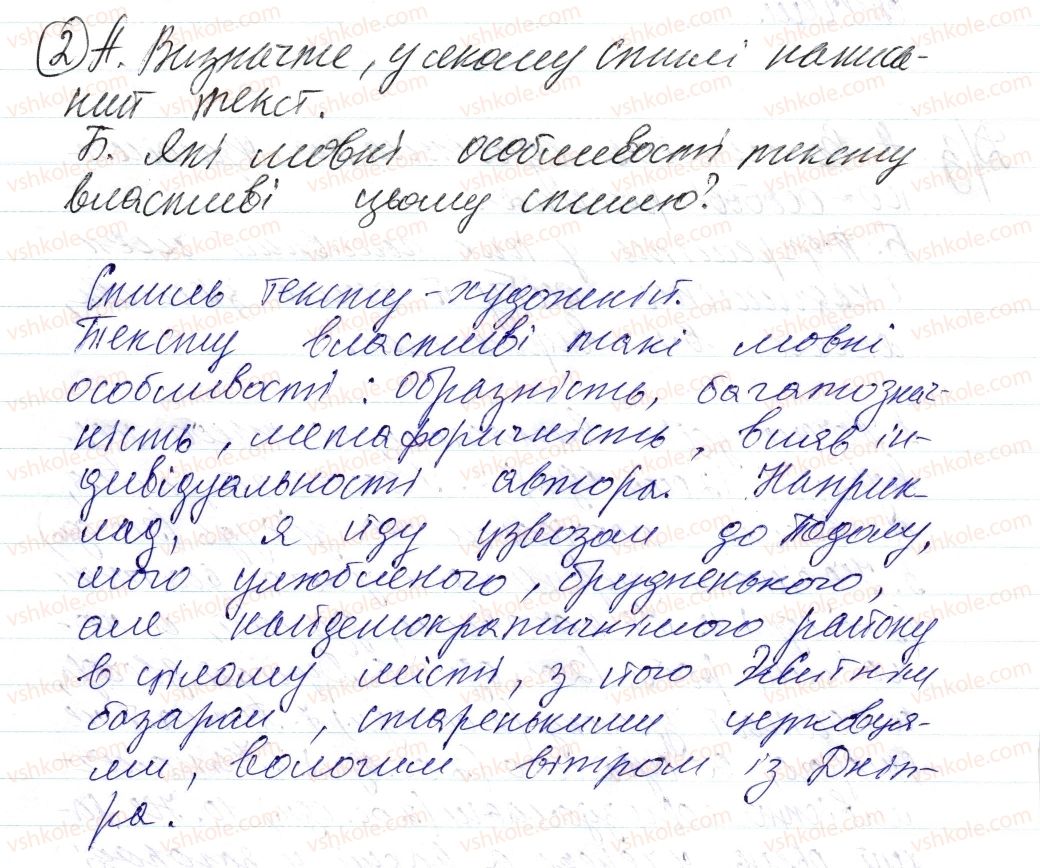 2 А. Визначте, у якому стилі написа-
ний текст.
Б. Які мовні особливості тексту
властиві цьому стилю?
Стиль тексту - художній.
Тексту властиві такі мовні
особливості: образність, багатознач-
ність, метафоричність, вияв ін-
дивідуальності автора. Наприк-
лад, я йду узвозом до Подолу,
мого улюбленого, брудненького,
але найдемократичнішого району
в цілому місті, з його Житнім
базаром, старенькими церковця-
ми, вологим вітром із Дніп-
ра.